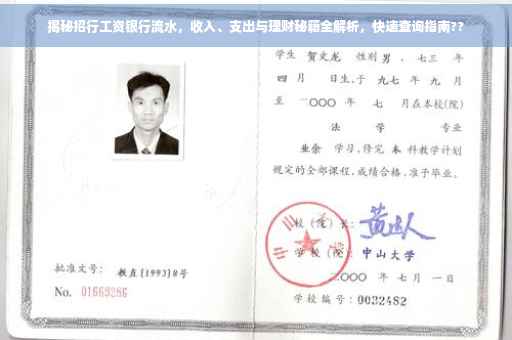 揭秘招行工资银行流水，收入、支出与理财秘籍全解析，快速查询指南??
学生 贺文龙 性别 男，七三 年
四 月 日生,于 九七 年 九 月
至 二〇〇〇 年 七 月在本校(院)
法 学 专业
业余 学习,修完 本 科教学计划
规定的全部课程,成绩合格,准予毕业。
校(院)长:
学 校(院): 中山大学
二〇〇〇 年 七 月 一 日
学校编号: 0032482
批准文号: 教直[1993]8号
No. 01669286